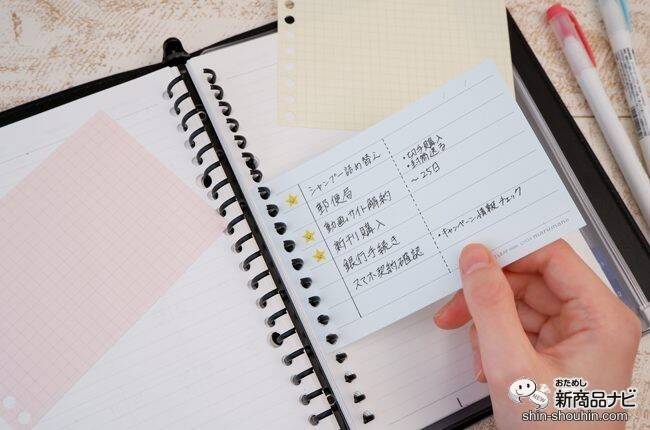 シャンプー詰め替え
郵便局
・切手購入
・封筒送る
動画サイト解約
〜25日
新刊購入
銀行手続き
スマホ契約確認
・キャンペーン情報チェック
maruman
NEW
おためし
新商品ナビ
shin-shouhin.com